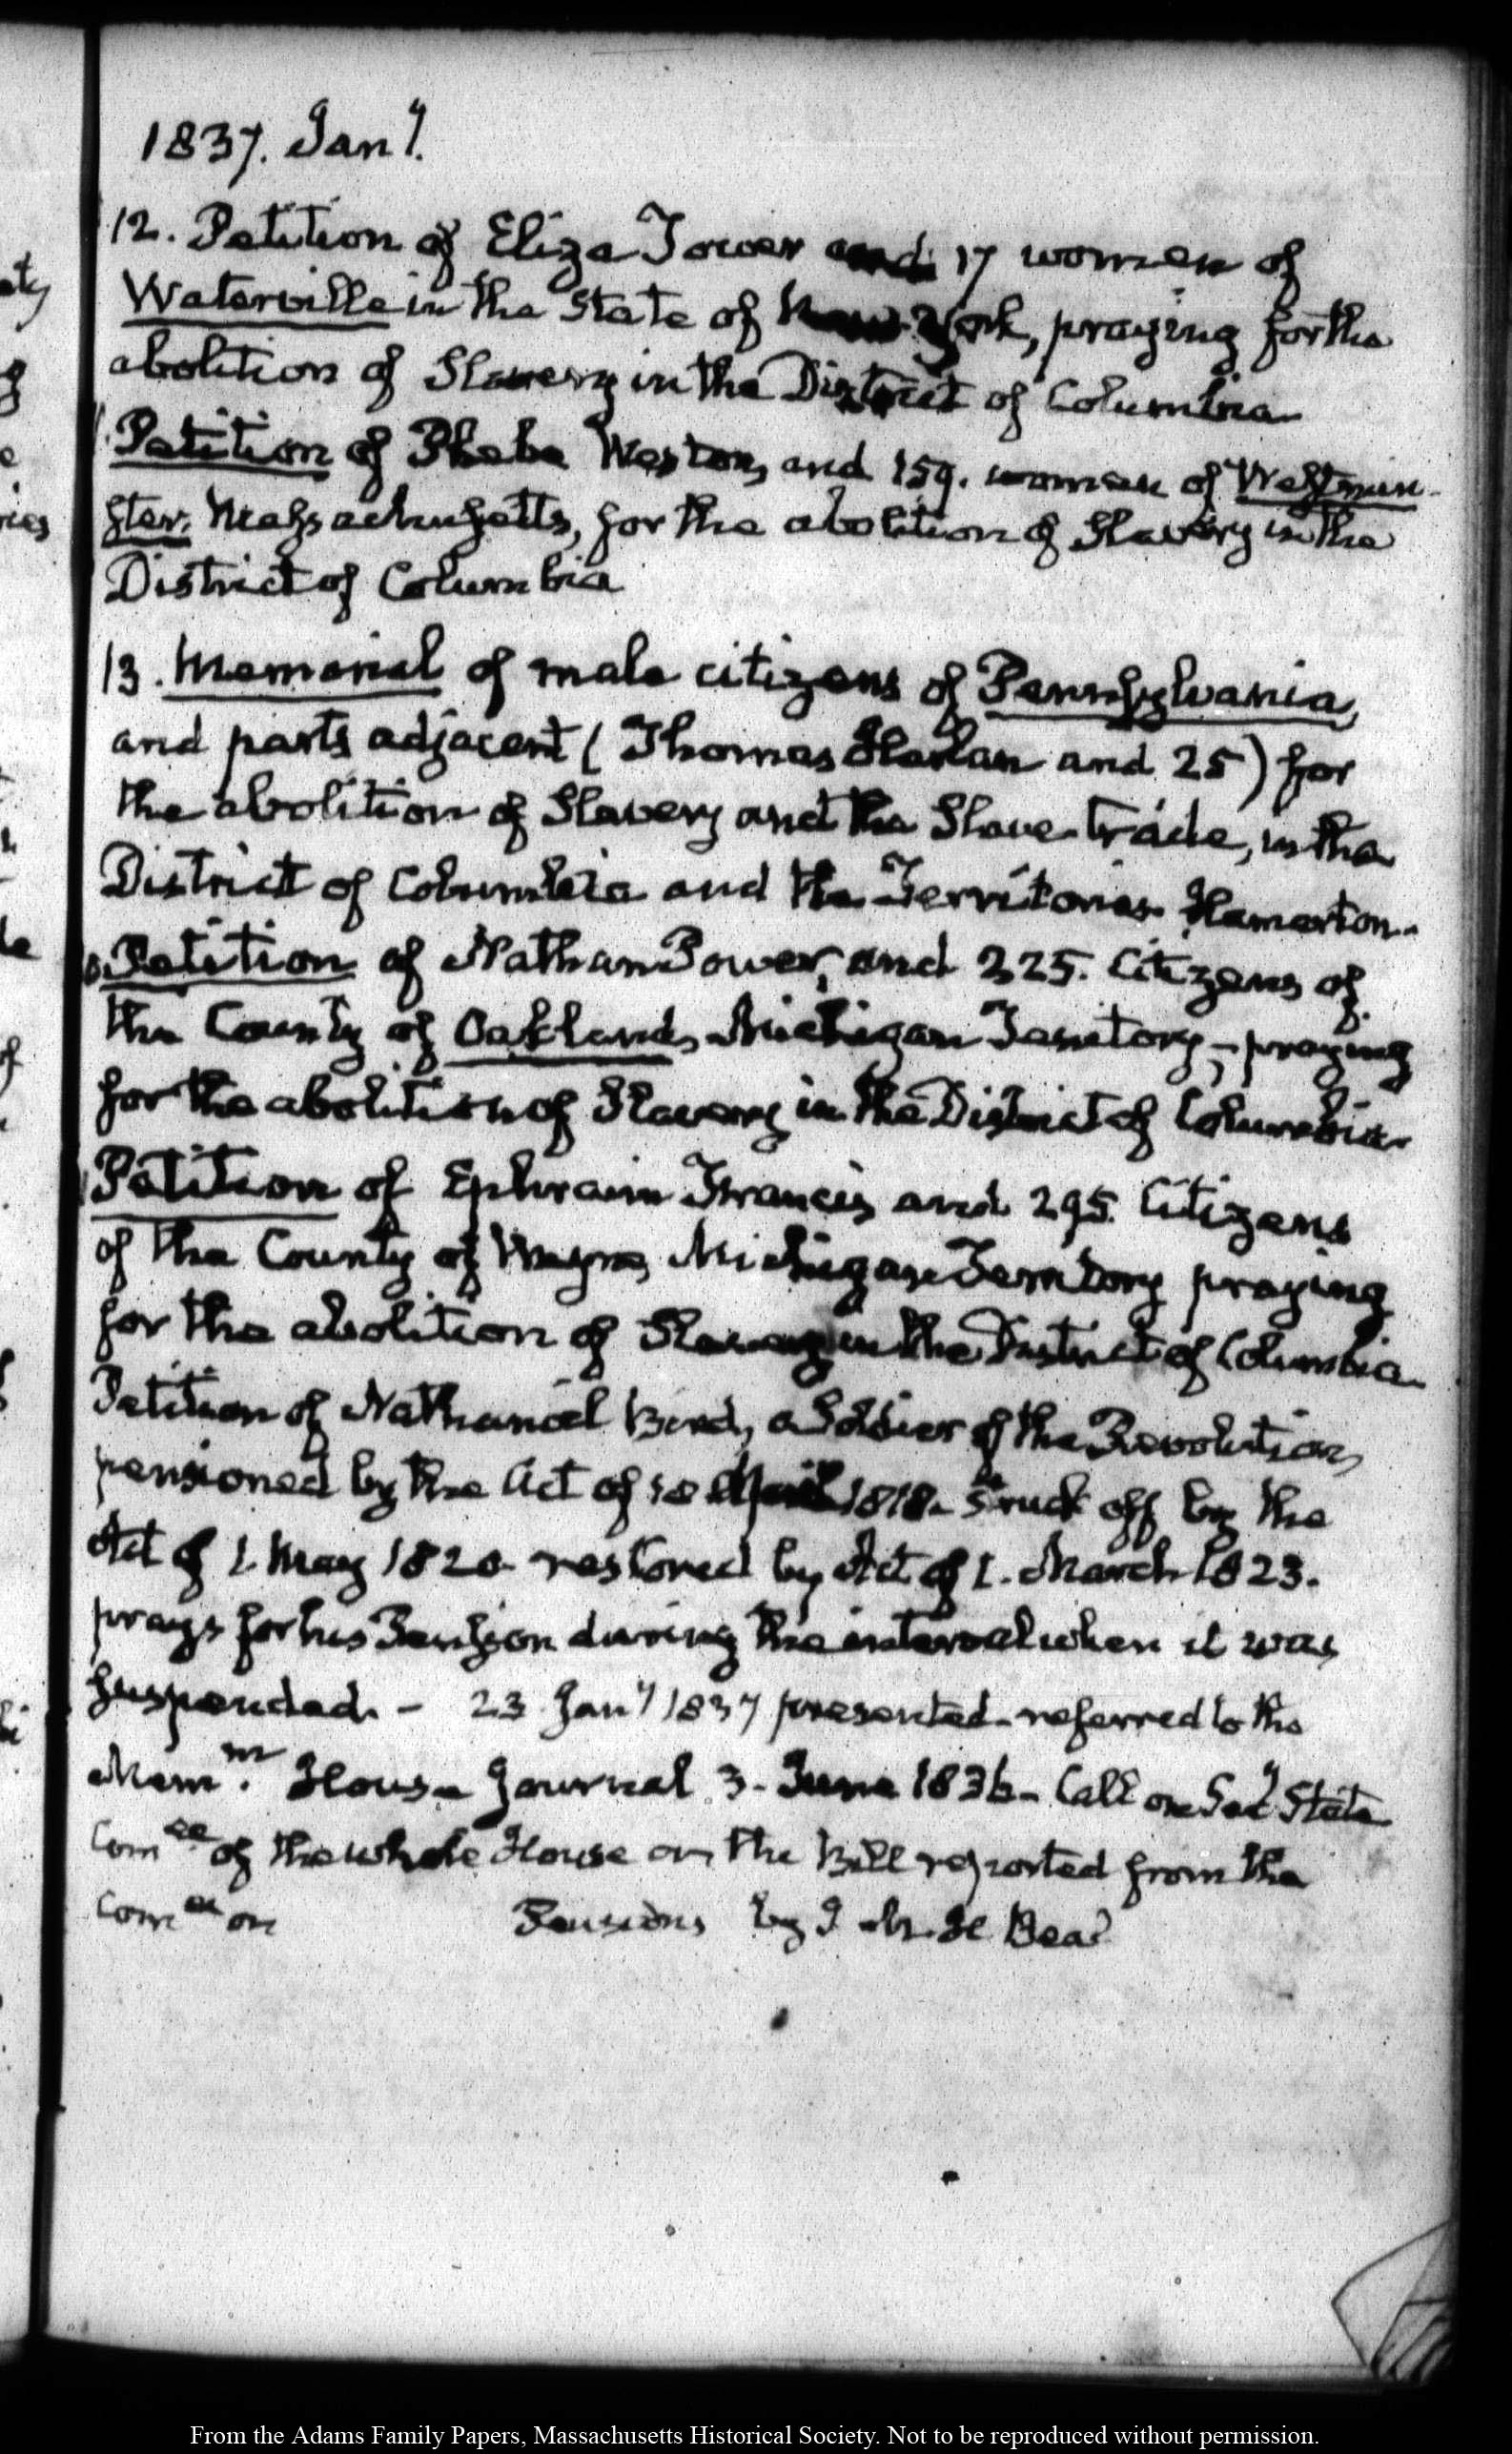 1837. Jany.
12. Petition of Eliza Tower and 17 women of
Waterville in the State of New-York, praying for the
abolition of Slavery in the District of Columbia
Petition of Phebe Weston, and 159. women of Westmin-
ster. Massachusetts, for the abolition of Slavery in the
District of Columbia
13. Memorial of male citizens of Pennsylvania,
and parts adjacent (Thomas Harlan and 25) for
the abolition of Slavery and the Slave-trade, in the
District of Columbia and the Territories. Hamorton.
Petition of Nathan Power, and 225. Citizens of
the County of Oakland, Michigan Territory, praying
for the abolition of Slavery in the District of Columbia
Petition of Ephraim Francis and 295. Citizens
of the County of Wayne, Michigan Territory praying
for the abolition of Slavery in the District of Columbia.
Petition of Nathaniel Bird, a Soldier of the Revolution,
pensioned by the Act of 18 April 1818. Struck off by the
Act of 1. May 1820 restored by Act of 1. March 1823.
prays for his Pension during the interval when it was
suspended. - 23 Jany 1837 presented - referred to the
House Journal 3. June 1836. Call on Secy State
Comee of the whole House on the Bill reported from the
Comee on Pensions by
From the Adams Family Papers, Massachusetts Historical Society. Not to be reproduced without permission.